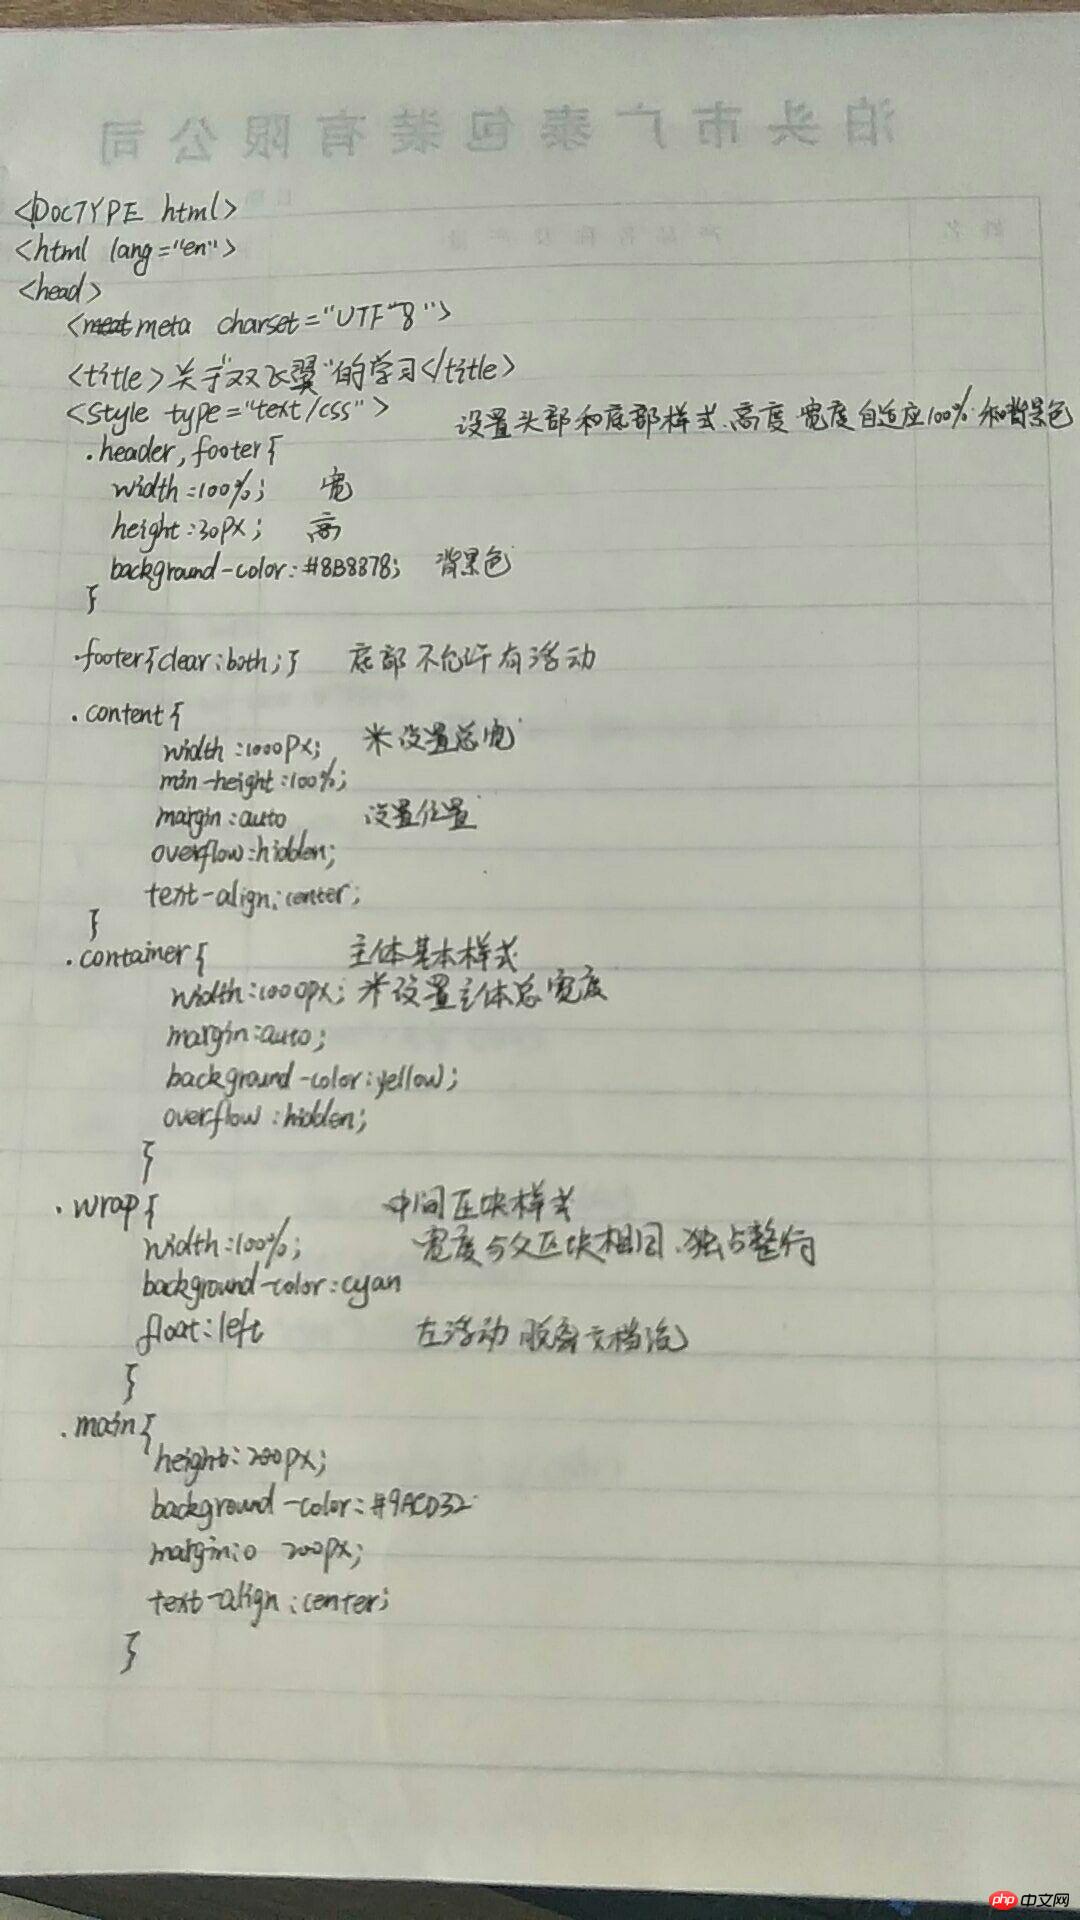 泊头市广泰包装有限公司
<!DOCTYPE html>
<html lang="en">
<head>
<meta charset="UTF-8">
<title>关于"双飞翼"的学习</title>
<style type="text/css">
设置头部和底部样式.高度 宽度自适应100% 和背景色
.header,footer{
width:100%; 宽
height:30px; 高
background-color:#8B8878; 背景色
}
.footer{clear:both;} 底部不允许有活动
.content{
width:1000px; 米设置总宽
min-height:100%;
margin:auto 设置位置
overflow:hidden;
text-align:center;
}
.container{ 主体基本样式
width:1000px; 米设置主体总宽度
margin:auto;
background-color:yellow;
overflow:hidden;
}
.wrap{ 中间区块样式
width:100%; 宽度与父区块相同.独占整行
background-color:cyan
float:left 左活动 脱离文档流
}
.main{
height:200px;
background-color:#9ACD32
margin:0 200px;
text-align:center;
}
php中文网